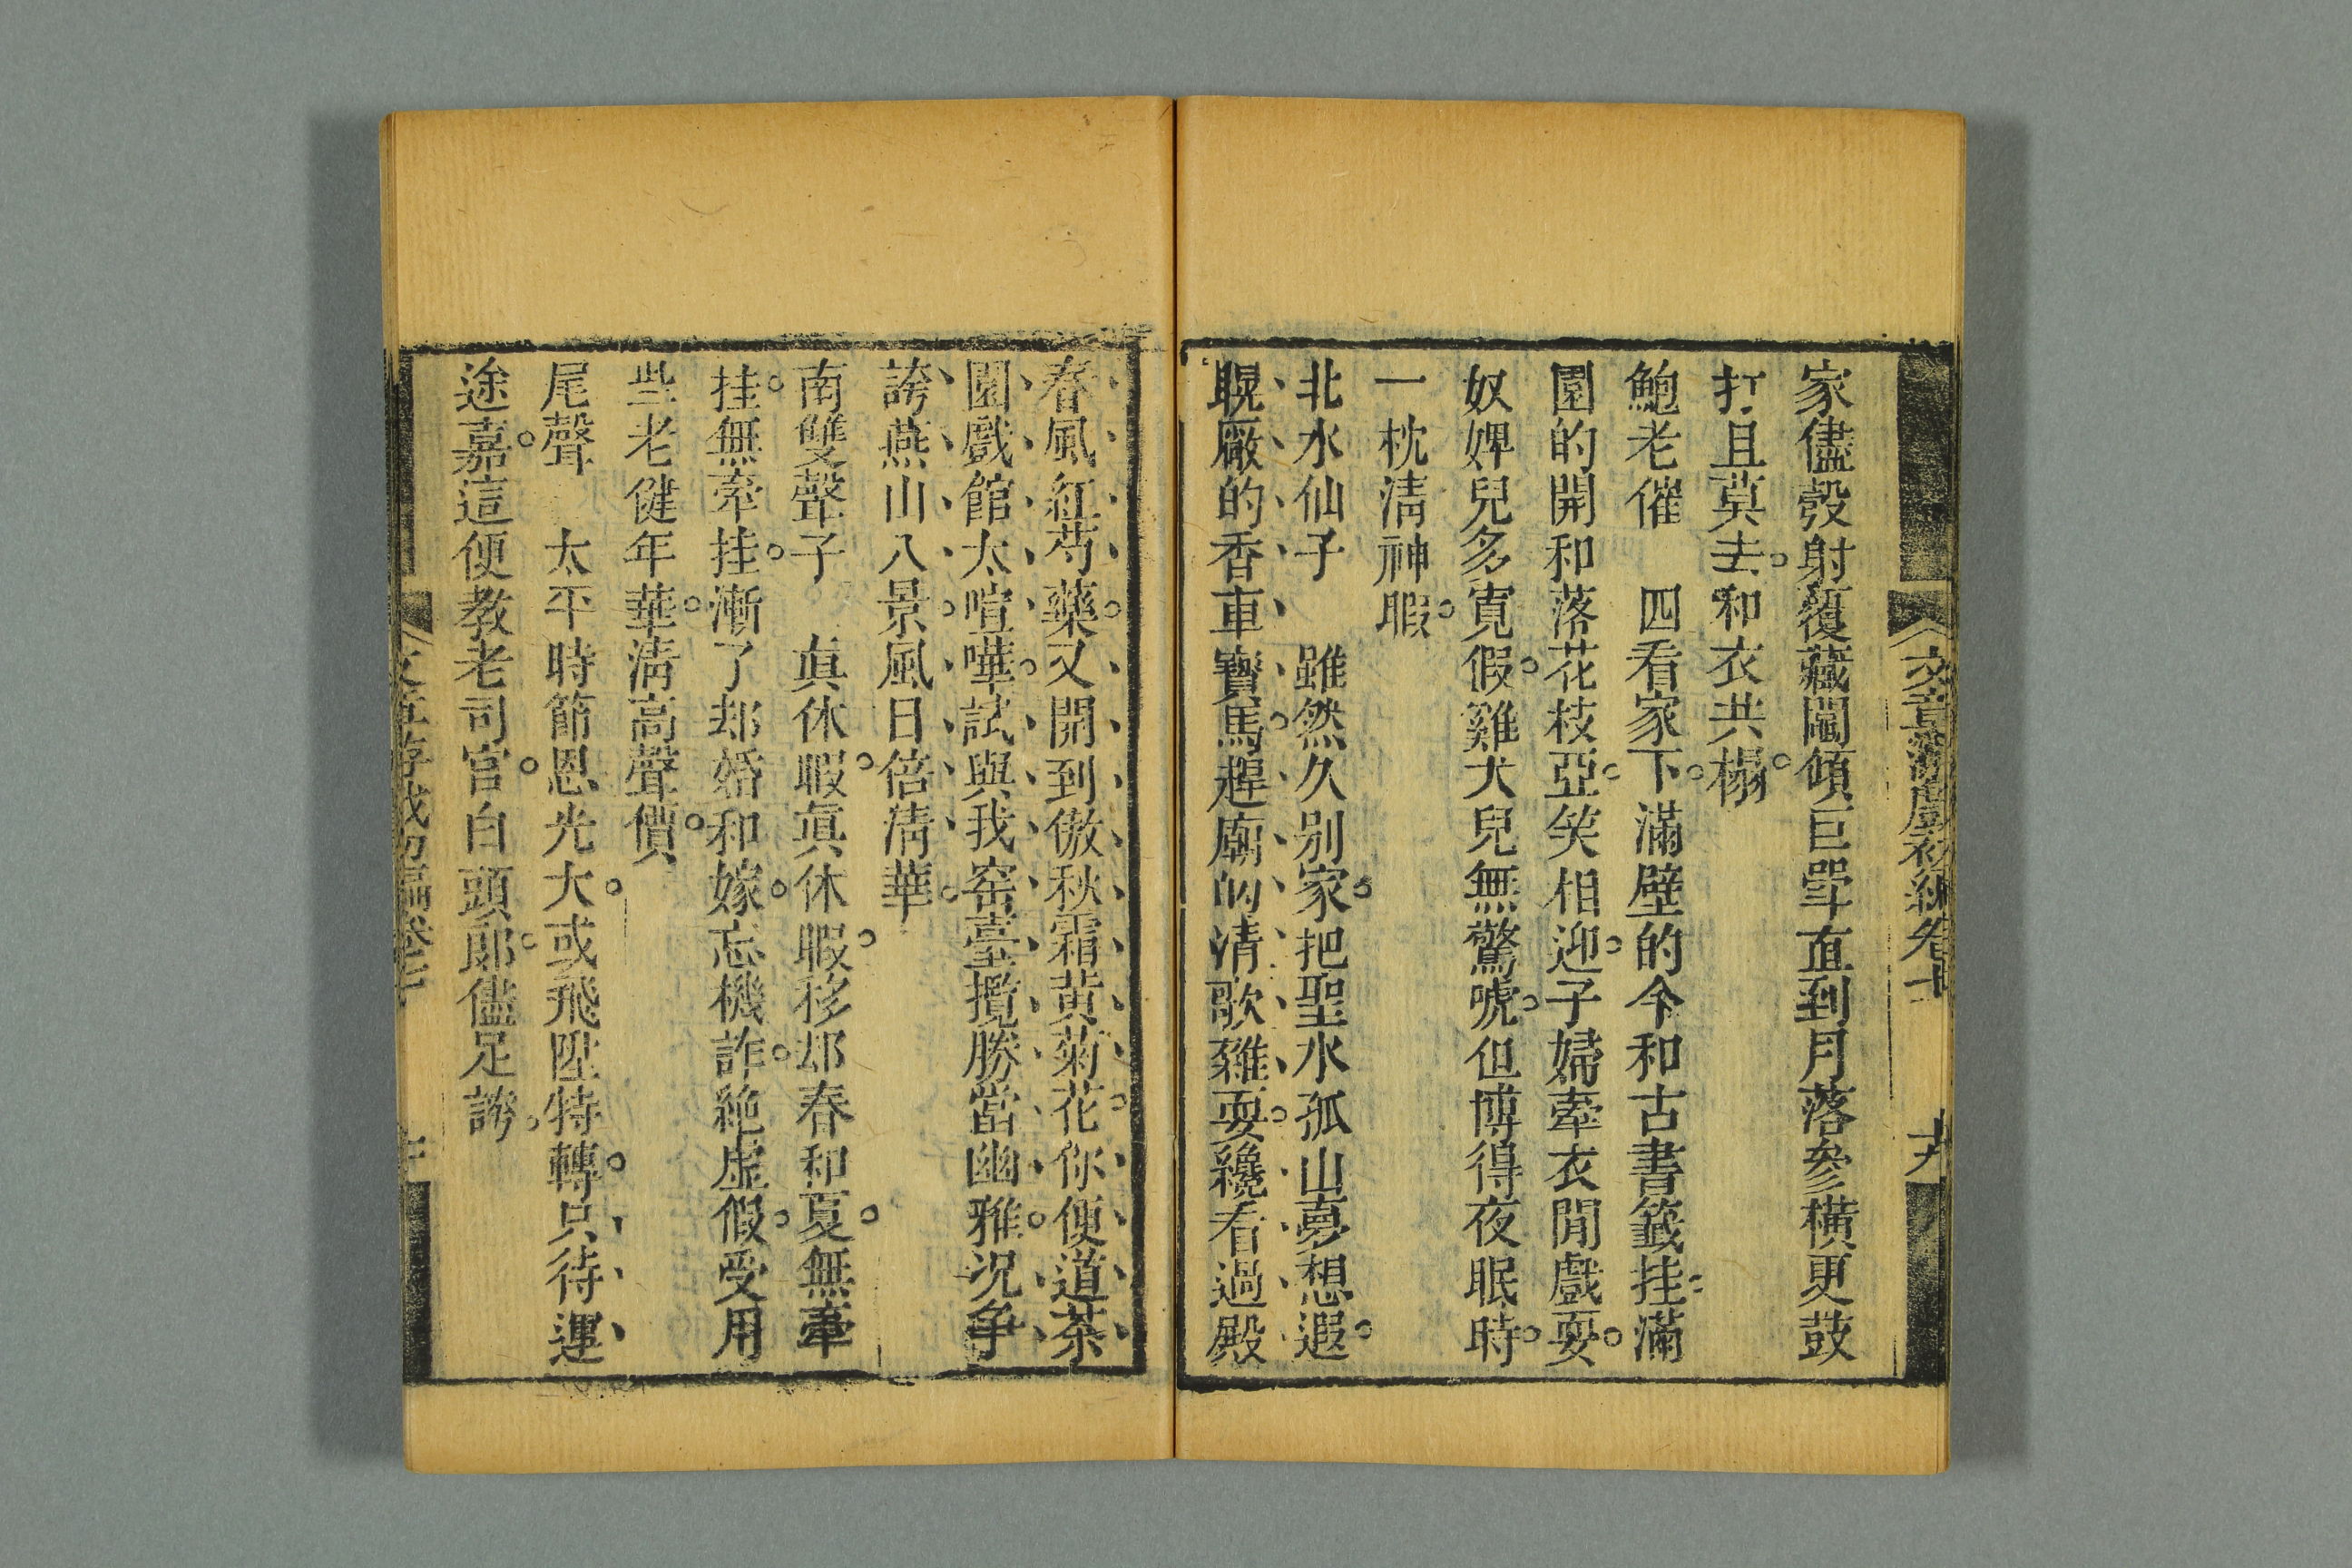 文章游戲初編卷七
家儘彀射覆藏鬮傾巨斝直到月落參橫更鼓
打。且莫去。和衣共榻。
鮑老催　四看家下。滿壁的今和古書籤挂。滿
園的開和落花枝亞。笑相迎。子婦牽衣閒戲耍。
奴婢兒多寬假。雞犬兒無驚唬。但博得夜眠時。
一枕清神暇。
北水仙子　雖然久別家。把聖水孤山夢想遐。
睍廠的香車寶馬。趕廟的清歌雜耍。纔看過殿
春風紅芍藥。又開到傲秋霜黃菊花。你便道茶
園戲館太喧嘩。試與我窑臺攬勝當幽雅。況爭
誇燕山八景。風日倍清華。
南雙聲子　真休暇。真休暇。移却春和夏。無牽
挂。無牽挂。漸了却婚和嫁。忘機詐。絕虛假。受用
些老健年華。清高聲價。
尾聲　太平時節恩光大。或飛陞特轉。只待運
途嘉。這便教老司官。白頭郎。儘足誇。